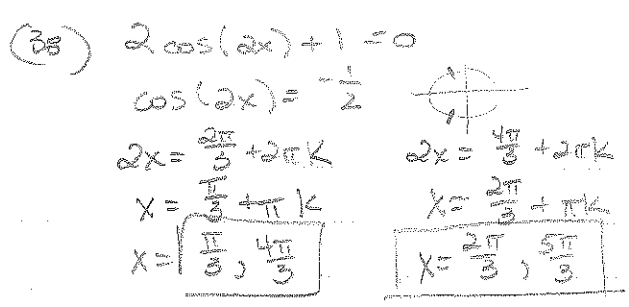 (38) 2 cos(2x) + 1 = 0
cos(2x) = -1/2
2x = 2π/3 + 2πk 2x = 4π/3 + 2πk
x = π/3 + πk x = 2π/3 + πk
x = π/3, 4π/3 x = 2π/3, 5π/3